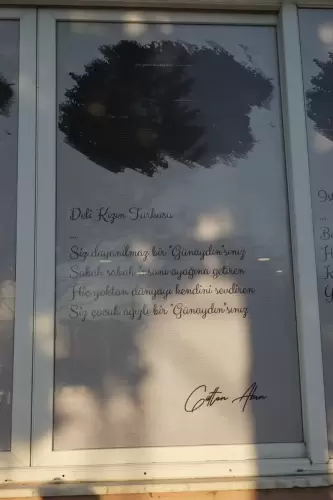 Deli Kızın Türküsü
...
Siz dayanılmaz bir "Günaydın"sınız
Sabah sabah insanı ayağına getiren
Hiç yoktan dünyayı kendini sevdiren
Siz çocuk ağızlı bir "Günaydın"sınız
Gülten Akın